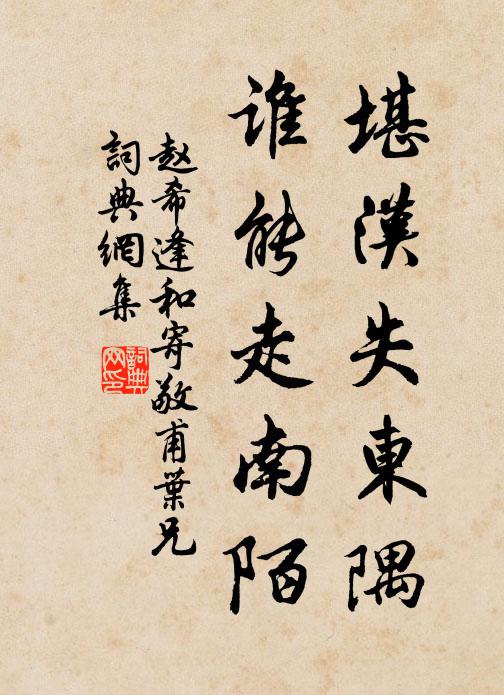 堪漢失東隅
誰能走南陌
赵希逢和寄敬甫葉兄
詞典網集
詞典網印